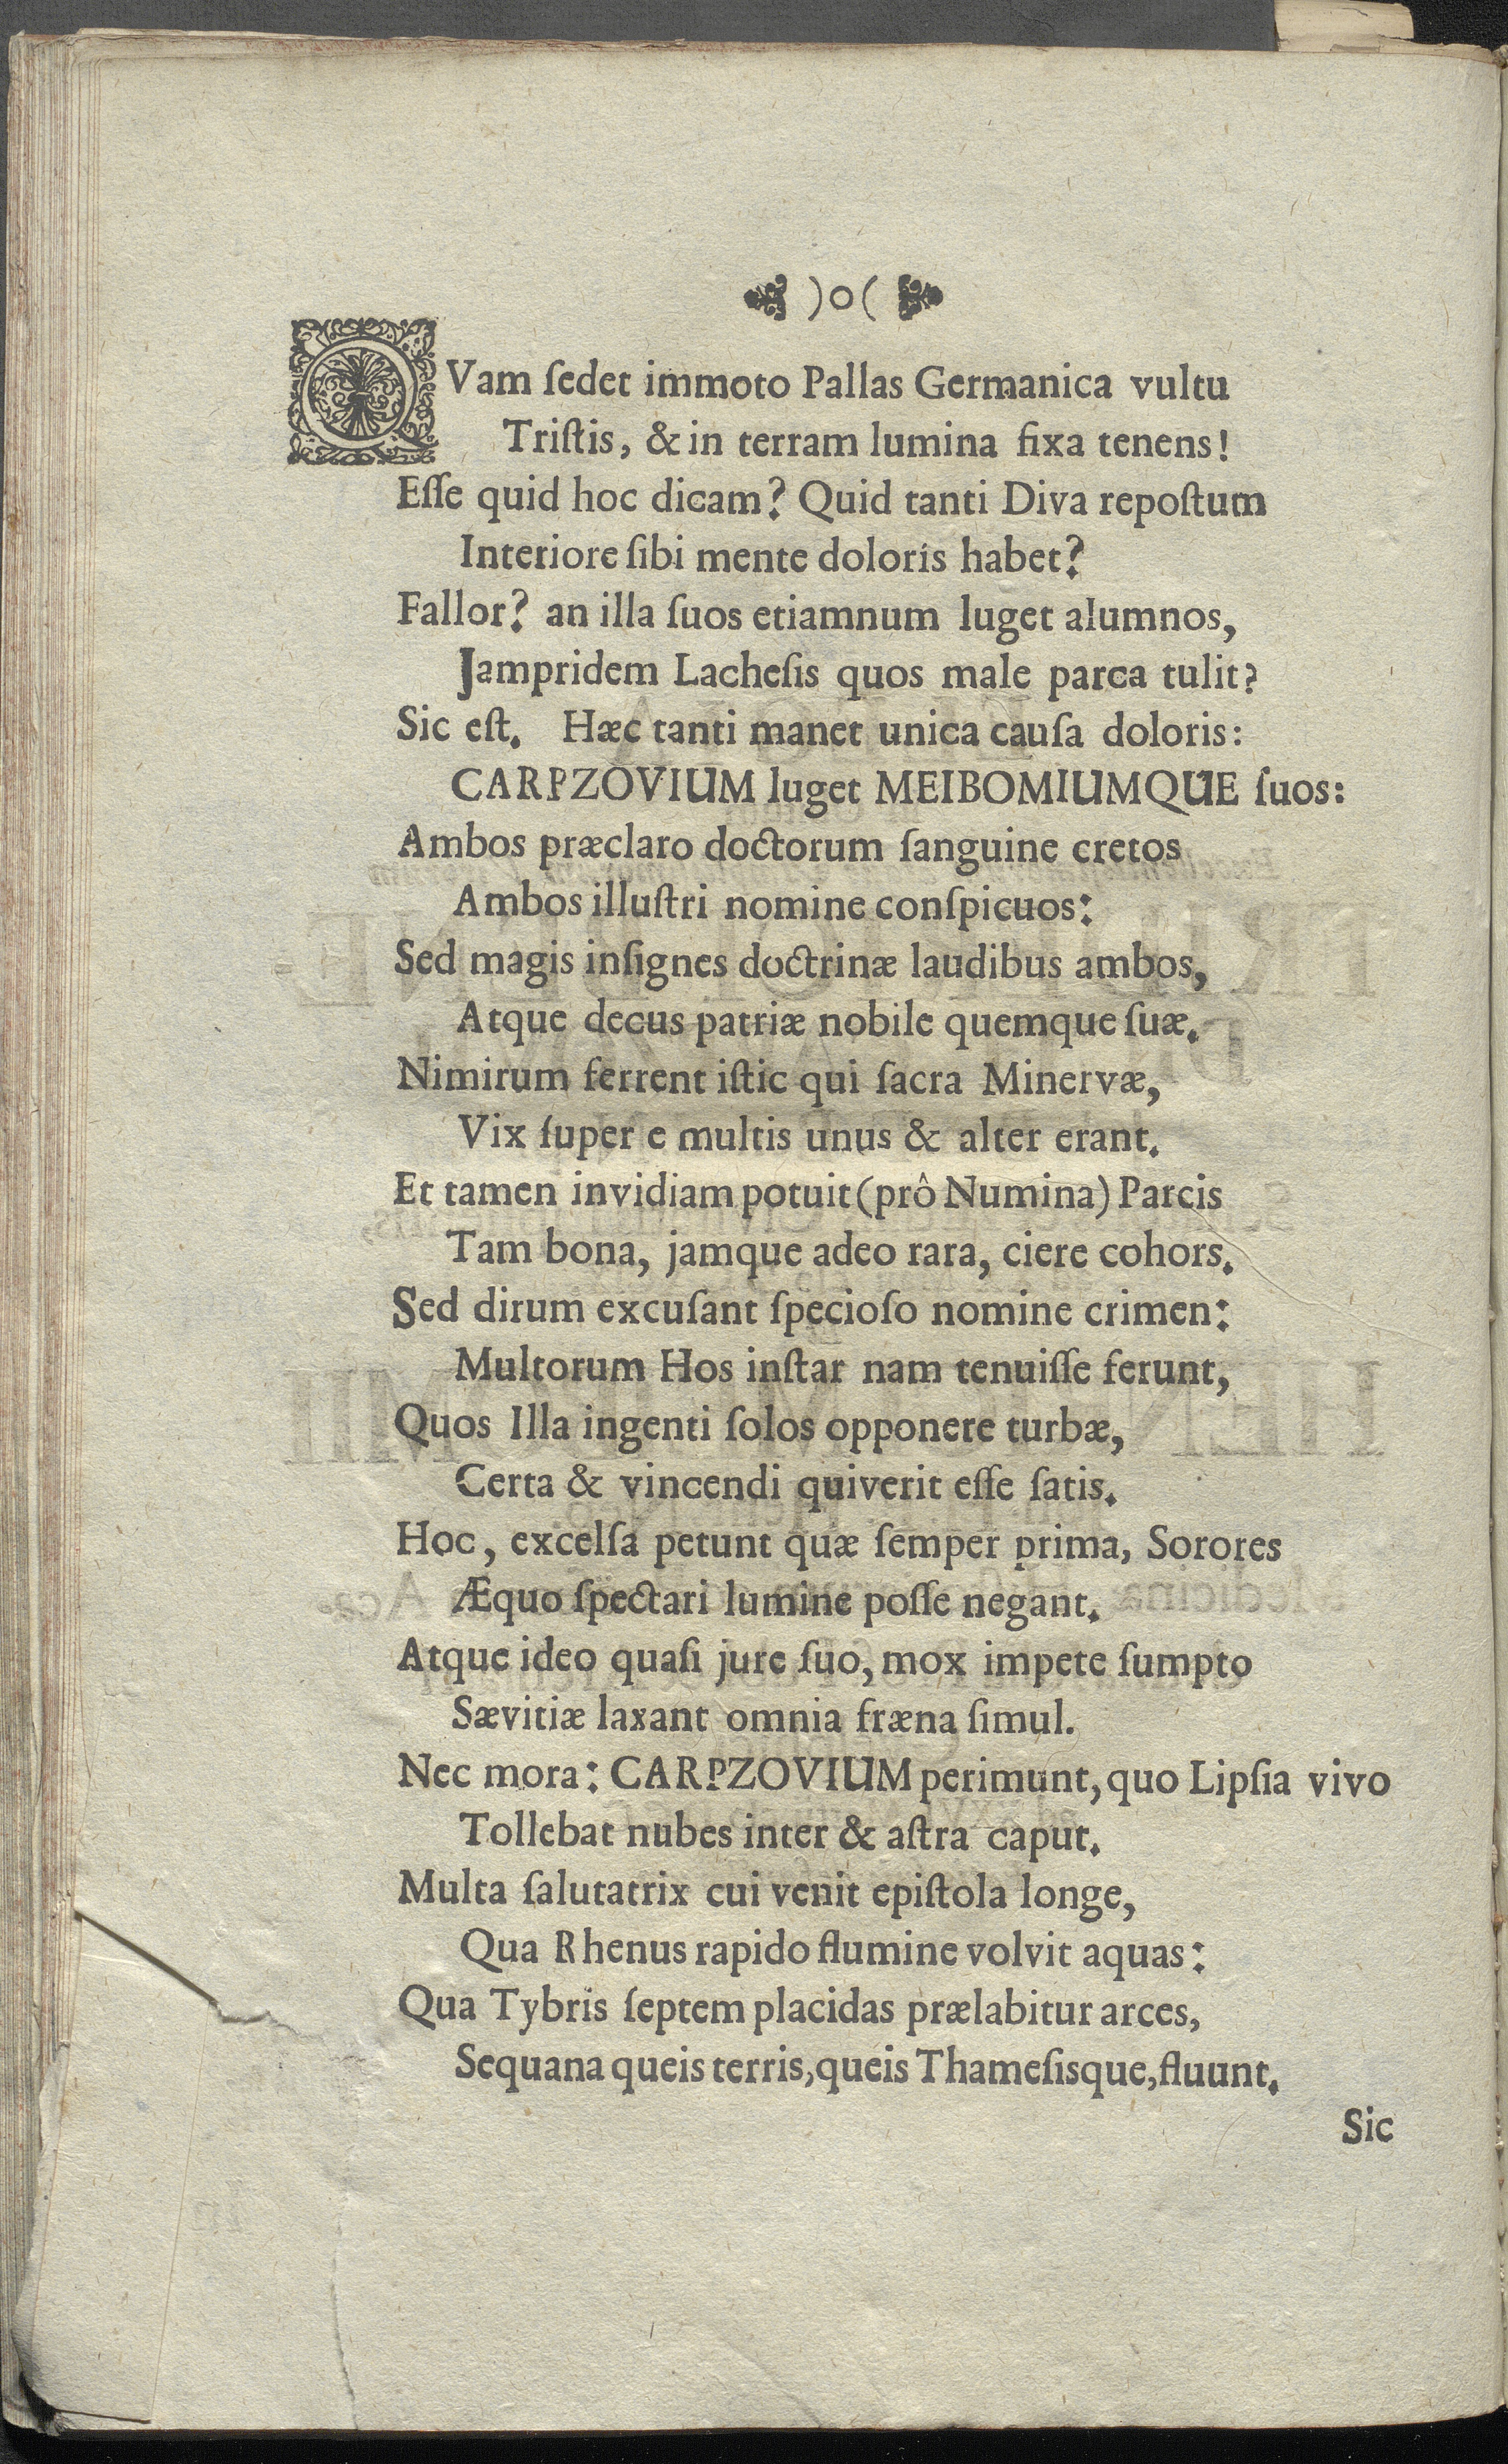 )o(
QVam ſedet immoto Pallas Germanica vultu
Triſtis, & in terram lumina fixa tenens!
Eſſe quid hoc dicam? Quid tanti Diva repoſtum
Interiore ſibi mente doloris habet?
Fallor? an illa ſuos etiamnum luget alumnos,
Jampridem Lacheſis quos male parca tulit?
Sic eſt. Hæc tanti manet unica cauſa doloris:
CARPZOVIUM luget MEIBOMIUMQUE ſuos:
Ambos præclaro doctorum ſanguine cretos
Ambos illuſtri nomine conſpicuos:
Sed magis inſignes doctrinæ laudibus ambos,
Atque decus patriæ nobile quemque ſuæ.
Nimirum ferrent iſtic qui ſacra Minervæ,
Vix ſuper e multis unus & alter erant.
Et tamen invidiam potuit (prô Numina) Parcis
Tam bona, jamque adeo rara, ciere cohors.
Sed dirum excuſant ſpecioſo nomine crimen:
Multorum Hos inſtar nam tenuiſſe ferunt,
Quos Illa ingenti ſolos opponere turbæ,
Certa & vincendi quiverit eſſe ſatis.
Hoc, excelſa petunt quæ ſemper prima, Sorores
Æquo ſpectari lumine poſſe negant.
Atque ideo quaſi jure ſuo, mox impete ſumpto
Sævitiæ laxant omnia fræna ſimul.
Nec mora: CARPZOVIUM perimunt, quo Lipſia vivo
Tollebat nubes inter & aſtra caput.
Multa ſalutatrix cui venit epiſtola longe,
Qua Rhenus rapido flumine volvit aquas:
Qua Tybris ſeptem placidas prælabitur arces,
Sequana queis terris, queis Thameſisque, fluunt.
Sic